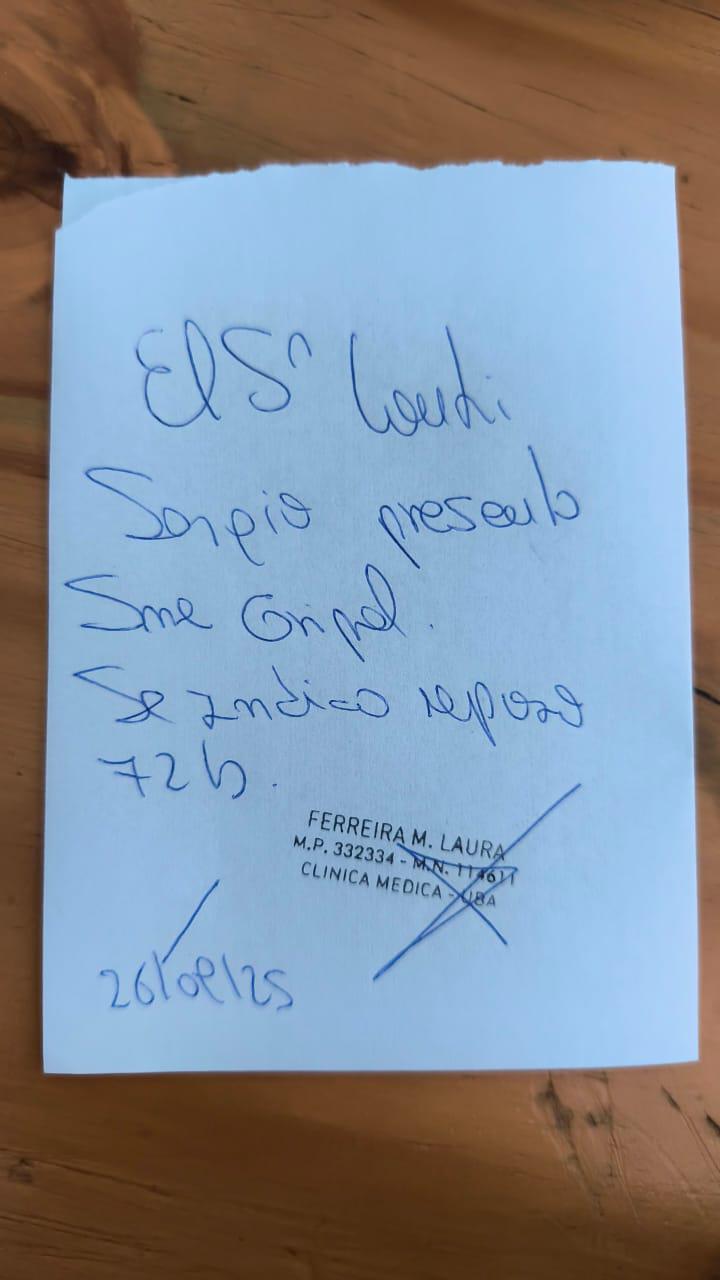 El Sr
Sergio presenta
Sme Gripal.
Se indico reposo
72 h.
FERREIRA M. LAURA
M.P. 332334 - M.N. 114611
CLINICA MEDICA - UBA
26/08/25